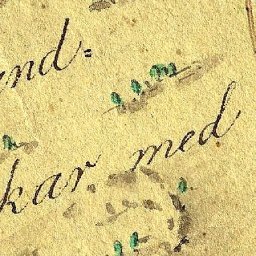 und=
kar med